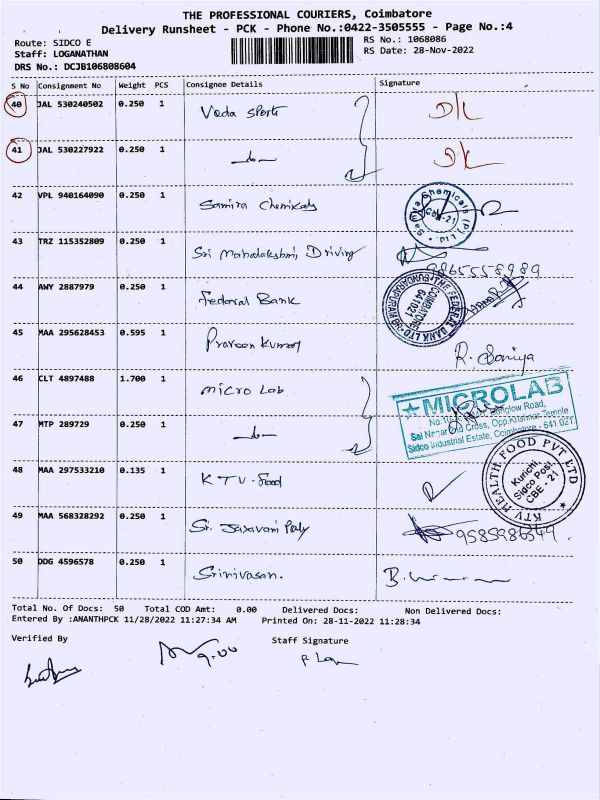 THE PROFESSIONAL COURIERS, Coimbatore
Delivery Runsheet - PCK - Phone No.:0422-3505555 - Page No.:4
Route: SIDCO E
RS No.: 1068086
Staff: LOGANATHAN
RS Date: 28-Nov-2022
DRS No.: DCJB106808604
S No Consignment No Weight PCS Consignee Details Signature
40 JAL 530240502 0.250 1 Veda Sports D/L
41 JAL 530227922 0.250 1 -do-
42 VPL 940164090 0.250 1 Samira Chemicals
43 TRZ 115352809 0.250 1 Sri Mahalakshmi Driving 9865558989
44 AWY 2887979 0.250 1 Federal Bank
THE FEDERAL BANK LTD
COIMBATORE
641021
45 MAA 295628453 0.595 1 Praveen Kumar R. Soniya
46 CLT 4897488 1.700 1 Micro Lab
MICROLAB
Sidco Industrial Estate, Coimbatore - 641 021
47 MTP 289729 0.250 1 -do-
48 MAA 297533210 0.135 1 KTV. Food
KTV HEALTH FOOD PVT LTD
Kurichi,
Sidco Post,
CBE - 21
49 MAA 568328292 0.250 1 Sri
50 DDG 4596578 0.250 1 Srinivasan.
Total No. Of Docs: 50 Total COD Amt: 0.00 Delivered Docs: Non Delivered Docs:
Entered By :ANANTHPCK 11/28/2022 11:27:34 AM Printed On: 28-11-2022 11:28:34
Verified By Staff Signature